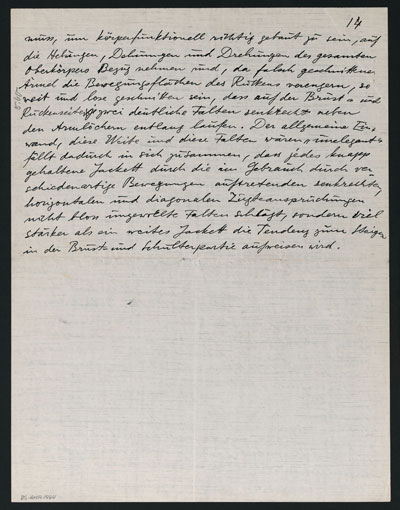 14
muss, um körperfunktionell richtig gebaut zu sein, auf
die Hebungen, Dehnungen und Drehungen des gesamten
Oberkörpers Bezug nehmen und, da falsch geschnittene
Ärmel die Bewegungsflächen des Rückens verengern, so
weit und lose geschnitten sein, dass auf der Brust- und
Rückenseite zwei deutliche Falten senkrecht neben
den Armlöchern entlang laufen. Der allgemeine Ein-
wand, diese Weite und diese Falten wären "unelegant"
fällt dadurch in sich zusammen, dass jedes knapp
gehaltene Jackett durch die im Gebrauch durch ver-
schiedenartige Bewegungen auftretenden senkrechten,
horizontalen und diagonalen Zugbeanspruchungen
nicht bloss ungewollte Falten schlägt, sondern viel
stärker als ein weites Jackett die Tendenz zum Steigen
in der Brust- und Schulterpartie aufweisen wird.